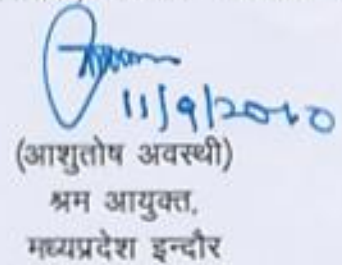 11/9/2010
(आशुतोष अवस्थी)
श्रम आयुक्त,
मध्यप्रदेश इन्दौर